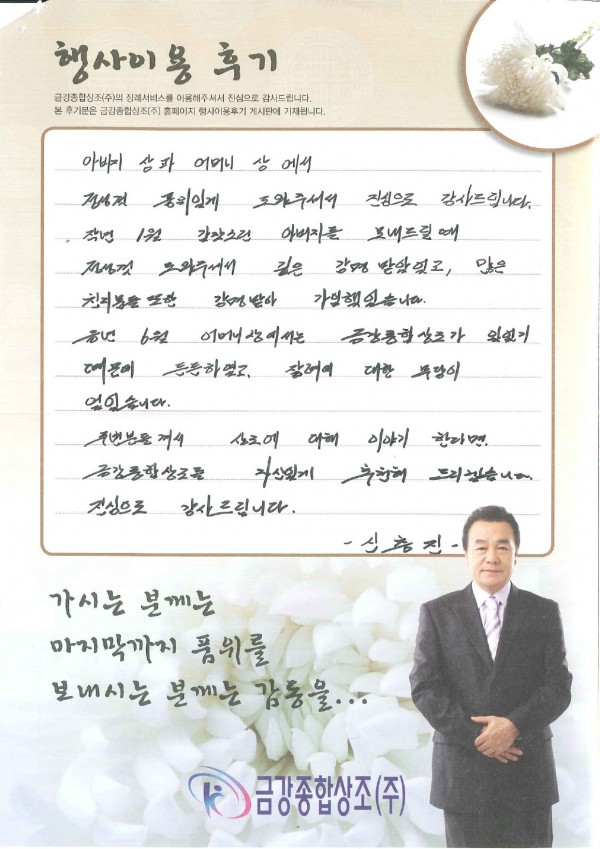 행사이용 후기
금강종합상조(주)의 장례서비스를 이용해주셔서 진심으로 감사드립니다.
본 후기문은 금강종합상조(주) 홈페이지 행사이용후기 게시판에 기재됩니다.
아버지 상과 어머니 상에서
정성껏 품위있게 도와주셔서 진심으로 감사드립니다.
작년 1월 갑작스런 아버지를 보내드릴때
정성껏 도와주셔서 깊은 감명 받았었고, 많은
친지분들 또한 감명받아 가입했었습니다.
올년 6월 어머니상에서는 금강종합상조가 있었기
때문에 든든하였고, 장례에 대한 부담이
없었습니다.
주변분들께서 상조에 대해 이야기 한다면.
금강종합상조를 자신있게 추천해 드리겠습니다.
진심으로 감사드립니다.
- 신흥진 -
가시는 분께는
마지막까지 품위를
보내시는 분께는 감동을...
금강종합상조(주)